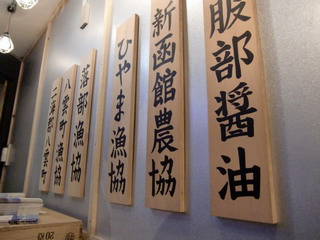 服部醸油
新函館農協
ひやま漁協
落部漁協
八雲町漁協
二海郡八雲町